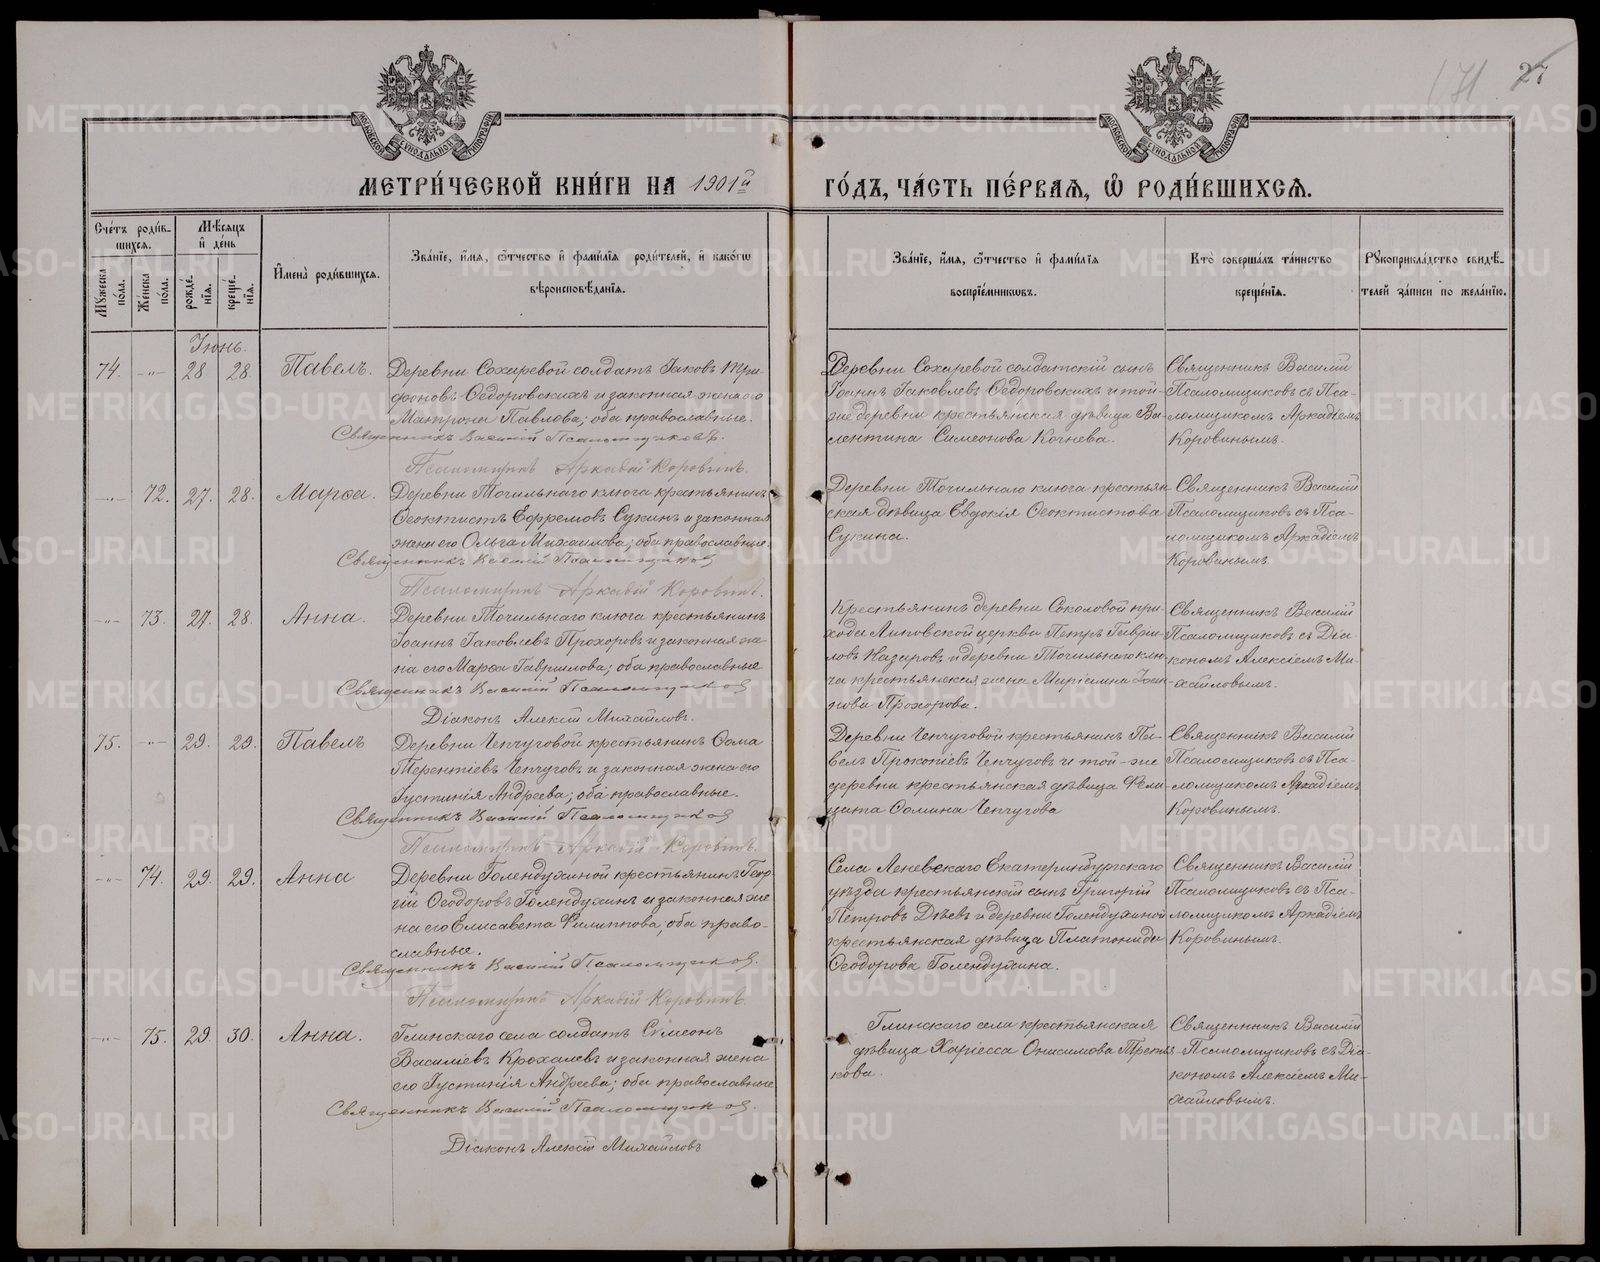 171 27
МЕТРИ́ЧЕСКОЙ КНИ́ГИ НА 1901й ГО́ДЪ, ЧА́СТЬ ПЕ́РВАѦ, Ѽ РОДИ́ВШИХСѦ.
МОСКОВСКОЙ СѴНОДАЛЬНОЙ ТИПОГРАФІИ
МОСКОВСКОЙ СѴНОДАЛЬНОЙ ТИПОГРАФІИ
Сче́тъ роди́вшихсѧ.
Мꙋ́жеска по́ла.
Же́нска по́ла.
Мѣ́сѧцъ и҆ де́нь
рожде́нїѧ.
креще́нїѧ.
И҆мена̀ роди́вшихсѧ.
Зва́нїе, и҆́мѧ, ѻ҆́тчество и҆ фамі́лїѧ роди́телей, и҆ како́гѡ
вѣроисповѣ́данїѧ.
Зва́нїе, и҆́мѧ, ѻ҆́тчество и҆ фамі́лїѧ
воспрїе́мникѡвъ.
Кто̀ соверша́лъ та́инство
креще́нїѧ.
Рꙋкоприкла́дство свидѣ́-
телей за́писи по жела́нїю.
Іюнь.
74. -"- 28 28. Павелъ.
Деревни Сохаревой солдатъ Іаковъ Три-
фоновъ Ѳедоровскихъ и законная жена его
Матрона Павлова; оба православные.
Священникъ Василій Псаломщиковъ.
Псаломщикъ Аркадій Коровинъ.
Деревни Сохаревой солдатскій сынъ
Іоаннъ Іаковлевъ Ѳедоровскихъ и той-
же деревни крестьянская дѣвица Ва-
лентина Симеонова Кочнева.
Священникъ Василій
Псаломщиковъ съ Пса-
ломщикомъ Аркадіемъ
Коровинымъ.
-"- 72. 27. 28. Марѳа.
Деревни Точильнаго ключа крестьянинъ
Ѳеоктистъ Ефремовъ Сукинъ и законная
жена его Ольга Михаилова; оба православные.
Священникъ Василій Псаломщиковъ
Псаломщикъ Аркадій Коровинъ.
Деревни Точильнаго ключа крестьян-
ская дѣвица Евдокія Ѳеоктистова
Сукина.
Священникъ Василій
Псаломщиковъ съ Пса-
ломщикомъ Аркадіемъ
Коровинымъ.
-"- 73. 27. 28. Анна.
Деревни Точильнаго ключа крестьянинъ
Іоаннъ Іаковлевъ Прохоровъ и законная же-
на его Марѳа Гавриилова; оба православные
Священникъ Василій Псаломщиковъ
Діаконъ Алексій Михайловъ.
Крестьянинъ деревни Соколовой при-
хода Липовской церкви Петръ Гаврии-
ловъ Назаровъ и деревни Точильнаго клю-
ча крестьянская жена Маріамна Іоан-
нова Прохорова.
Священникъ Василій
Псаломщиковъ съ Діа-
кономъ Алексіемъ Ми-
хайловымъ.
75. -"- 29. 29. Павелъ
Деревни Чепчуговой крестьянинъ Ѳома
Терентіевъ Чепчуговъ и законная жена его
Іустинія Андреева; оба православные.
Священникъ Василій Псаломщиковъ
Псаломщикъ Аркадій Коровинъ.
Деревни Чепчуговой крестьянинъ Па-
велъ Прокопіевъ Чепчуговъ и той-же
деревни крестьянская дѣвица Фели-
цата Ѳомина Чепчугова
Священникъ Василій
Псаломщиковъ съ Пса-
ломщикомъ Аркадіемъ
Коровинымъ.
-"- 74. 29. 29. Анна
Деревни Голендухиной крестьянинъ Геор-
гій Ѳеодоровъ Голендухинъ и законная же-
на его Елисавета Филиппова, оба право-
славные.
Священникъ Василій Псаломщиковъ.
Псаломщикъ Аркадій Коровинъ.
Села Леневскаго Екатеринбургскаго
уѣзда крестьянскій сынъ Григорій
Петровъ Дѣевъ и деревни Голендухиной
крестьянская дѣвица Платонида
Ѳеодорова Голендухина.
Священникъ Василій
Псаломщиковъ съ Пса-
ломщикомъ Аркадіемъ
Коровинымъ.
-"- 75. 29. 30. Анна.
Глинскаго села солдатъ Симеонъ
Василіевъ Крохалевъ и законная жена
его Іустинія Андреева; оба православные
Священникъ Василій Псаломщиковъ.
Діаконъ Алексій Михайловъ
Глинскаго села крестьянская
дѣвица Хариесса Онисимова Третья-
кова.
Священникъ Василій
Псаломщиковъ съ Діа-
кономъ Алексіемъ Ми-
хайловымъ.
METRIKI.GASO-URAL.RU